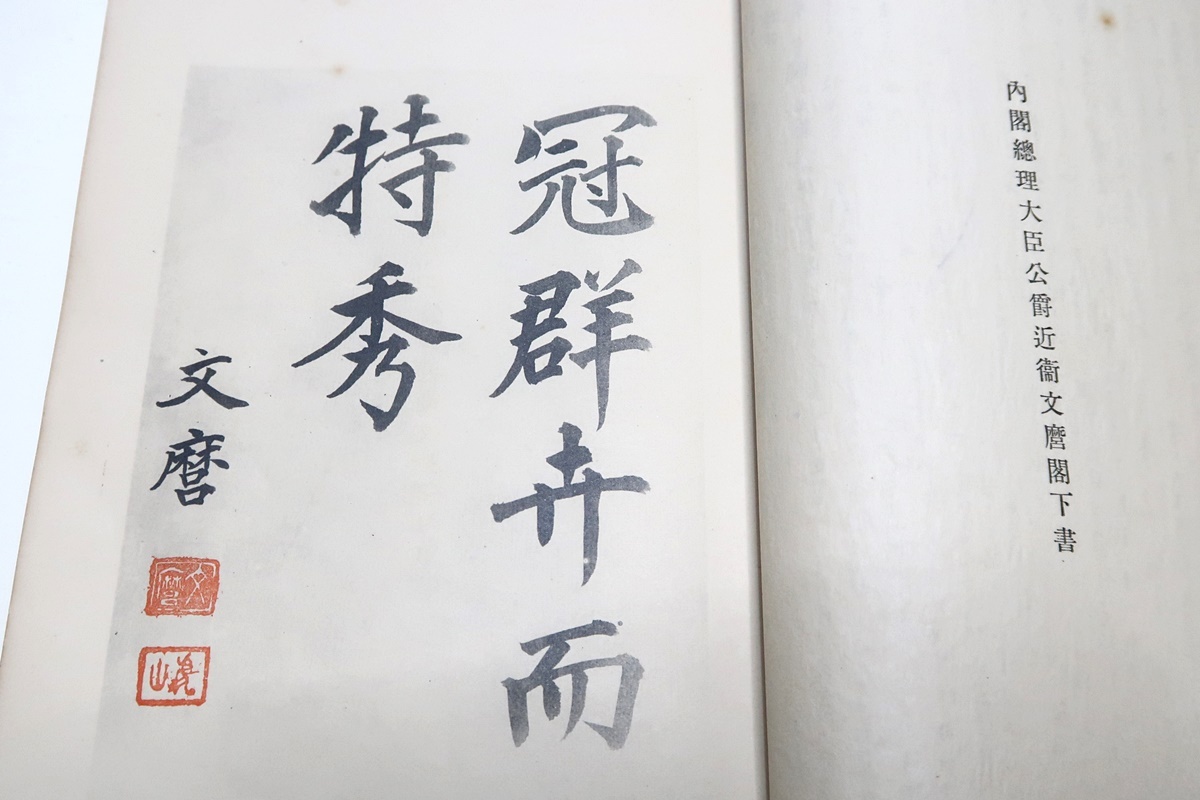 內閣總理大臣公爵近衞文麿閣下書
冠群卉而
特秀
文麿
文麿